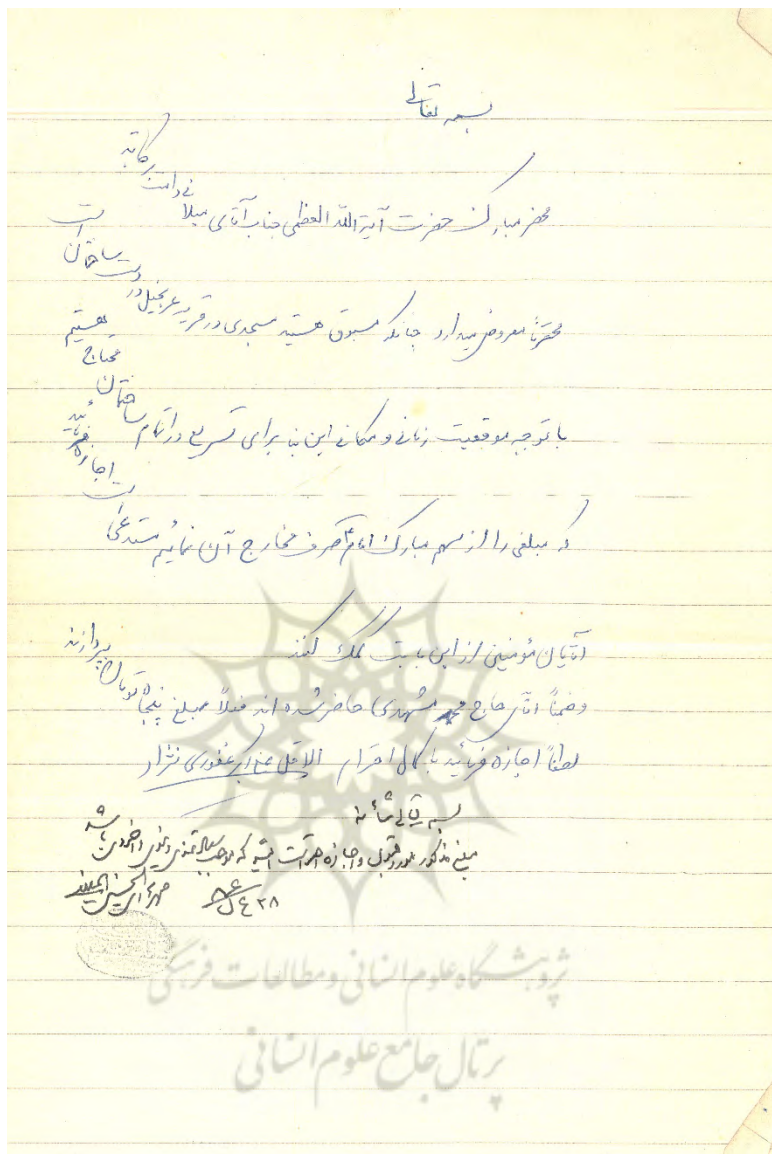 بسمه تعالی
محضر مبارک حضرت آیة الله العظمی جناب آقای میلانی دامت برکاته
محترماً معروض میدارد چنانکه مسبوق هستید مسجدی در قریه در دست ساختمان است
با توجه موقعیت زمانی و مکانی این بنا برای تسریع در اتمام ساختمان محتاج هستیم
که مبلغی را از سهم مبارک امام ع صرف مخارج آن نمائیم مستدعی است اجازه فرمائید
آقایان مؤمنین از این بابت کمک کنند
و ضمناً آقای حاج محمد مشهدی حاضر شده اند فعلاً مبلغ پنجاه تومان بپردازند
لطفاً اجازه فرمائید با کمال احترام الاقل غفوری نژاد
بسمه تعالی شأنه
مبلغ مذکور مورد قبول و اجازه است که موجب
۲۸ ع الحسینی المیلانی
پژوهشگاه علوم انسانی و مطالعات فرهنگی
پرتال جامع علوم انسانی